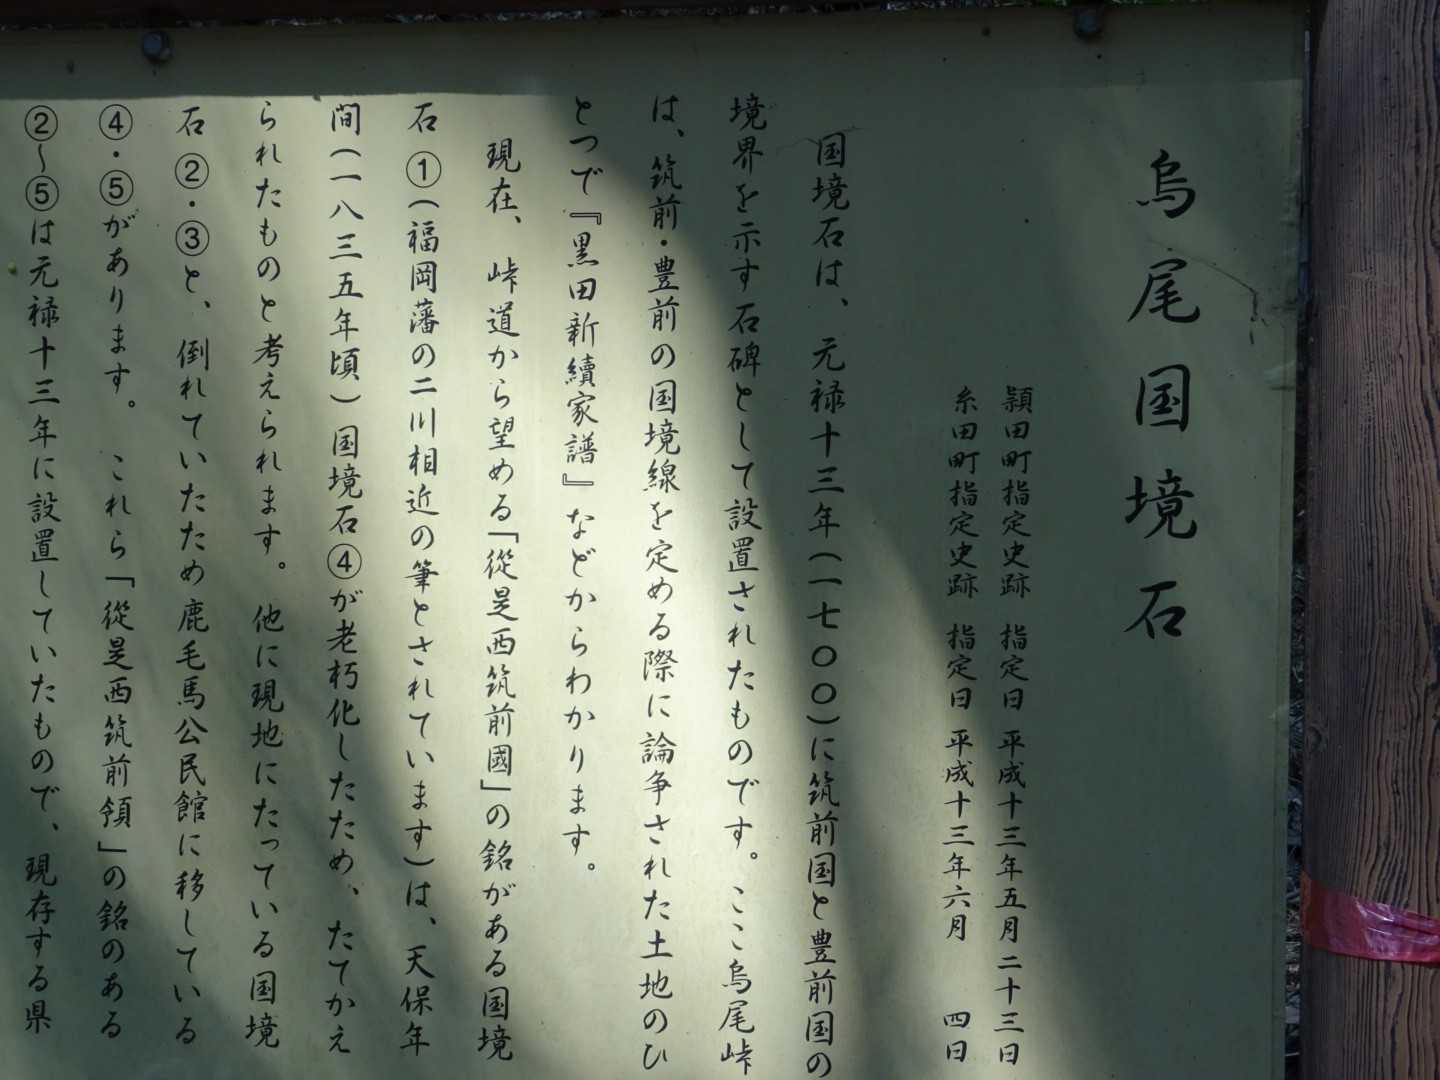 烏尾国境石
頴田町指定史跡 指定日 平成十三年五月二十三日
糸田町指定史跡 指定日 平成十三年六月 四日
国境石は、元禄十三年(一七〇〇)に筑前国と豊前国の
境界を示す石碑として設置されたものです。ここ烏尾峠
は、筑前・豊前の国境線を定める際に論争された土地のひ
とつで『黒田新續家譜』などからわかります。
現在、峠道から望める「從是西筑前國」の銘がある国境
石①(福岡藩の二川相近の筆とされています)は、天保年
間(一八三五年頃)国境石④が老朽化したため、たてかえ
られたものと考えられます。他に現地にたっている国境
石②・③と、倒れていたため鹿毛馬公民館に移している
④・⑤があります。これら「從是西筑前領」の銘のある
②〜⑤は元禄十三年に設置していたもので、現存する県